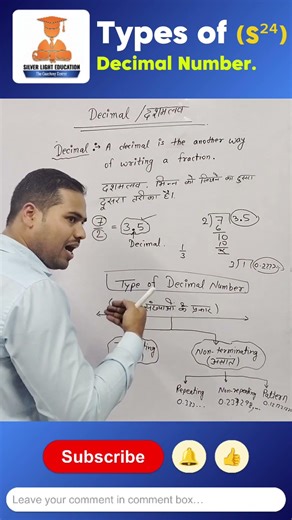 SILVER LIGHT EDUCATION
The Coaching Center
Types of (S²⁴)
Decimal Number.
Decimal /दशमलव
Decimal :- A decimal is the another way
of writing a fraction.
दशमलव, भिन्न को लिखने का
दूसरा तरीका है।
7/2 = 3.5
2) 7 (3.5
6
10
10
Decimal
1/3
Type of Decimal Number
के प्रकार
Non-terminating
Repeating
Non-repeating
Pattern
0.333...
Subscribe
Leave your comment in comment box...